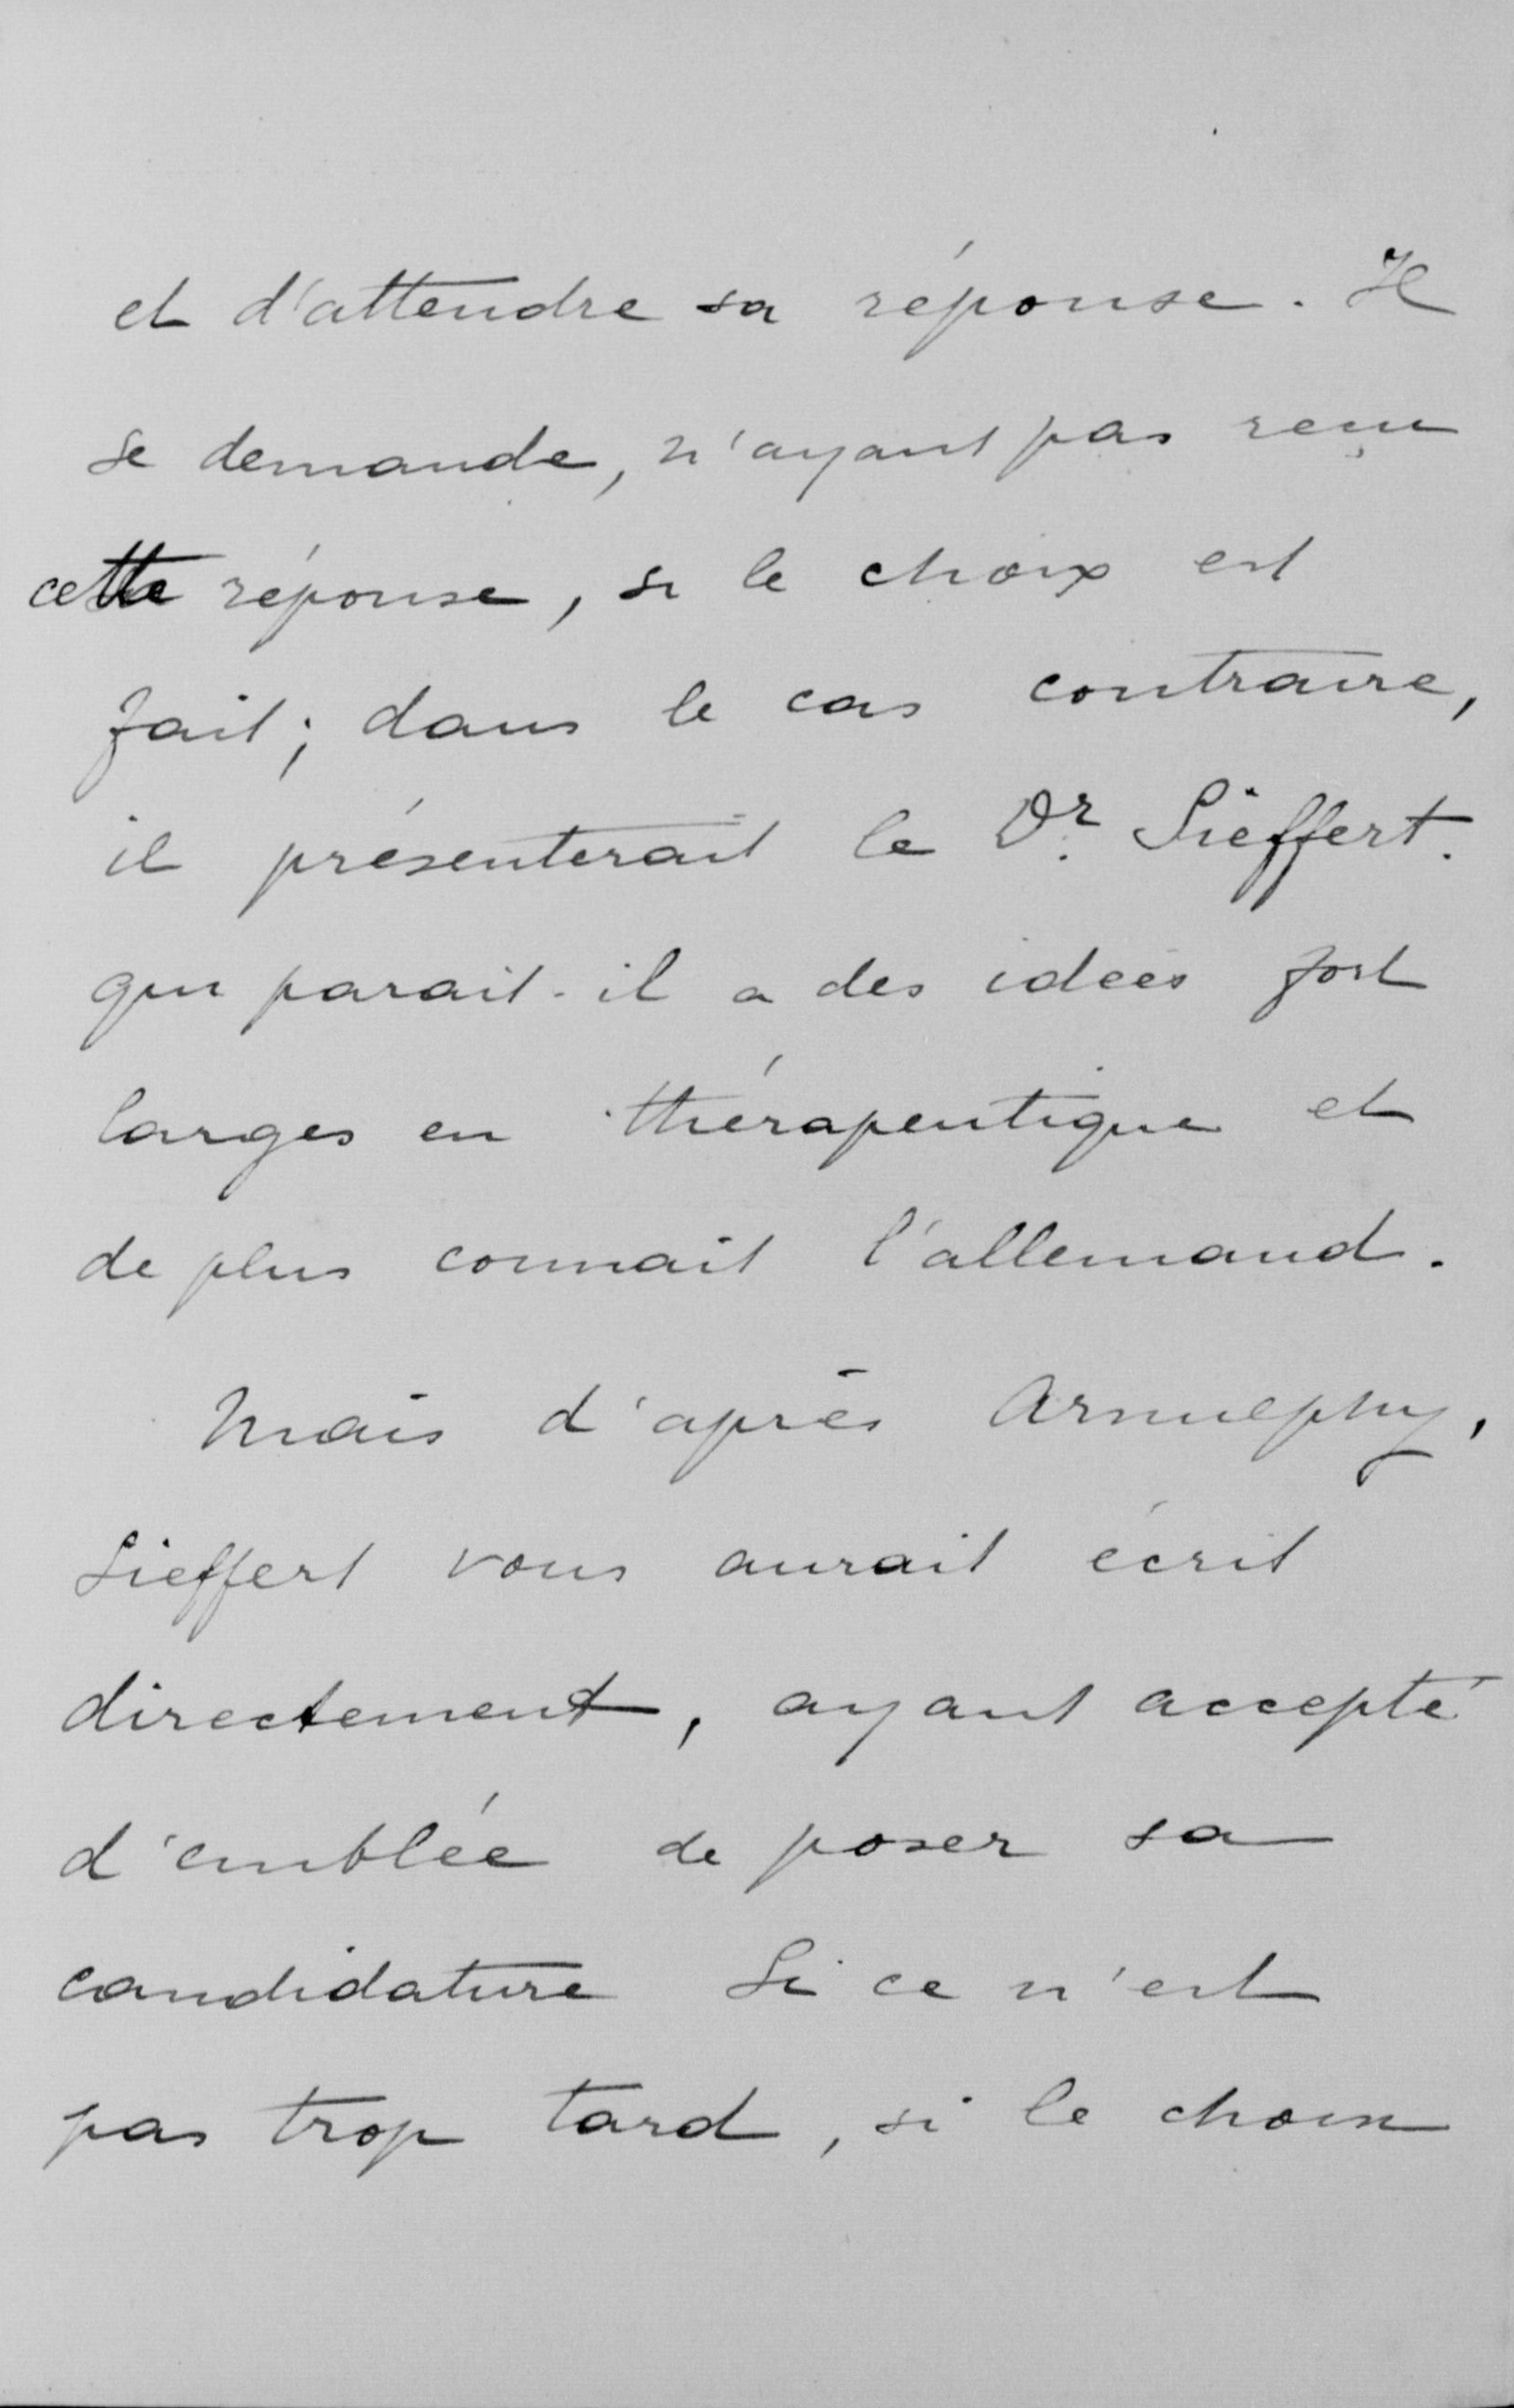 et d'attendre sa réponse. Il
se demande, n'ayant pas reçu
cette réponse, si le choix est
fait; dans le cas contraire,
il présenterait le Dr. Sieffert.
qui parait-il a des idées fort
larges en thérapeutique et
de plus connait l'allemand.
Mais d'après Arnulphy,
Sieffert vous aurait écrit
directement, ayant accepté
d'emblée de poser sa
candidature Si ce n'est
pas trop tard, si le choix